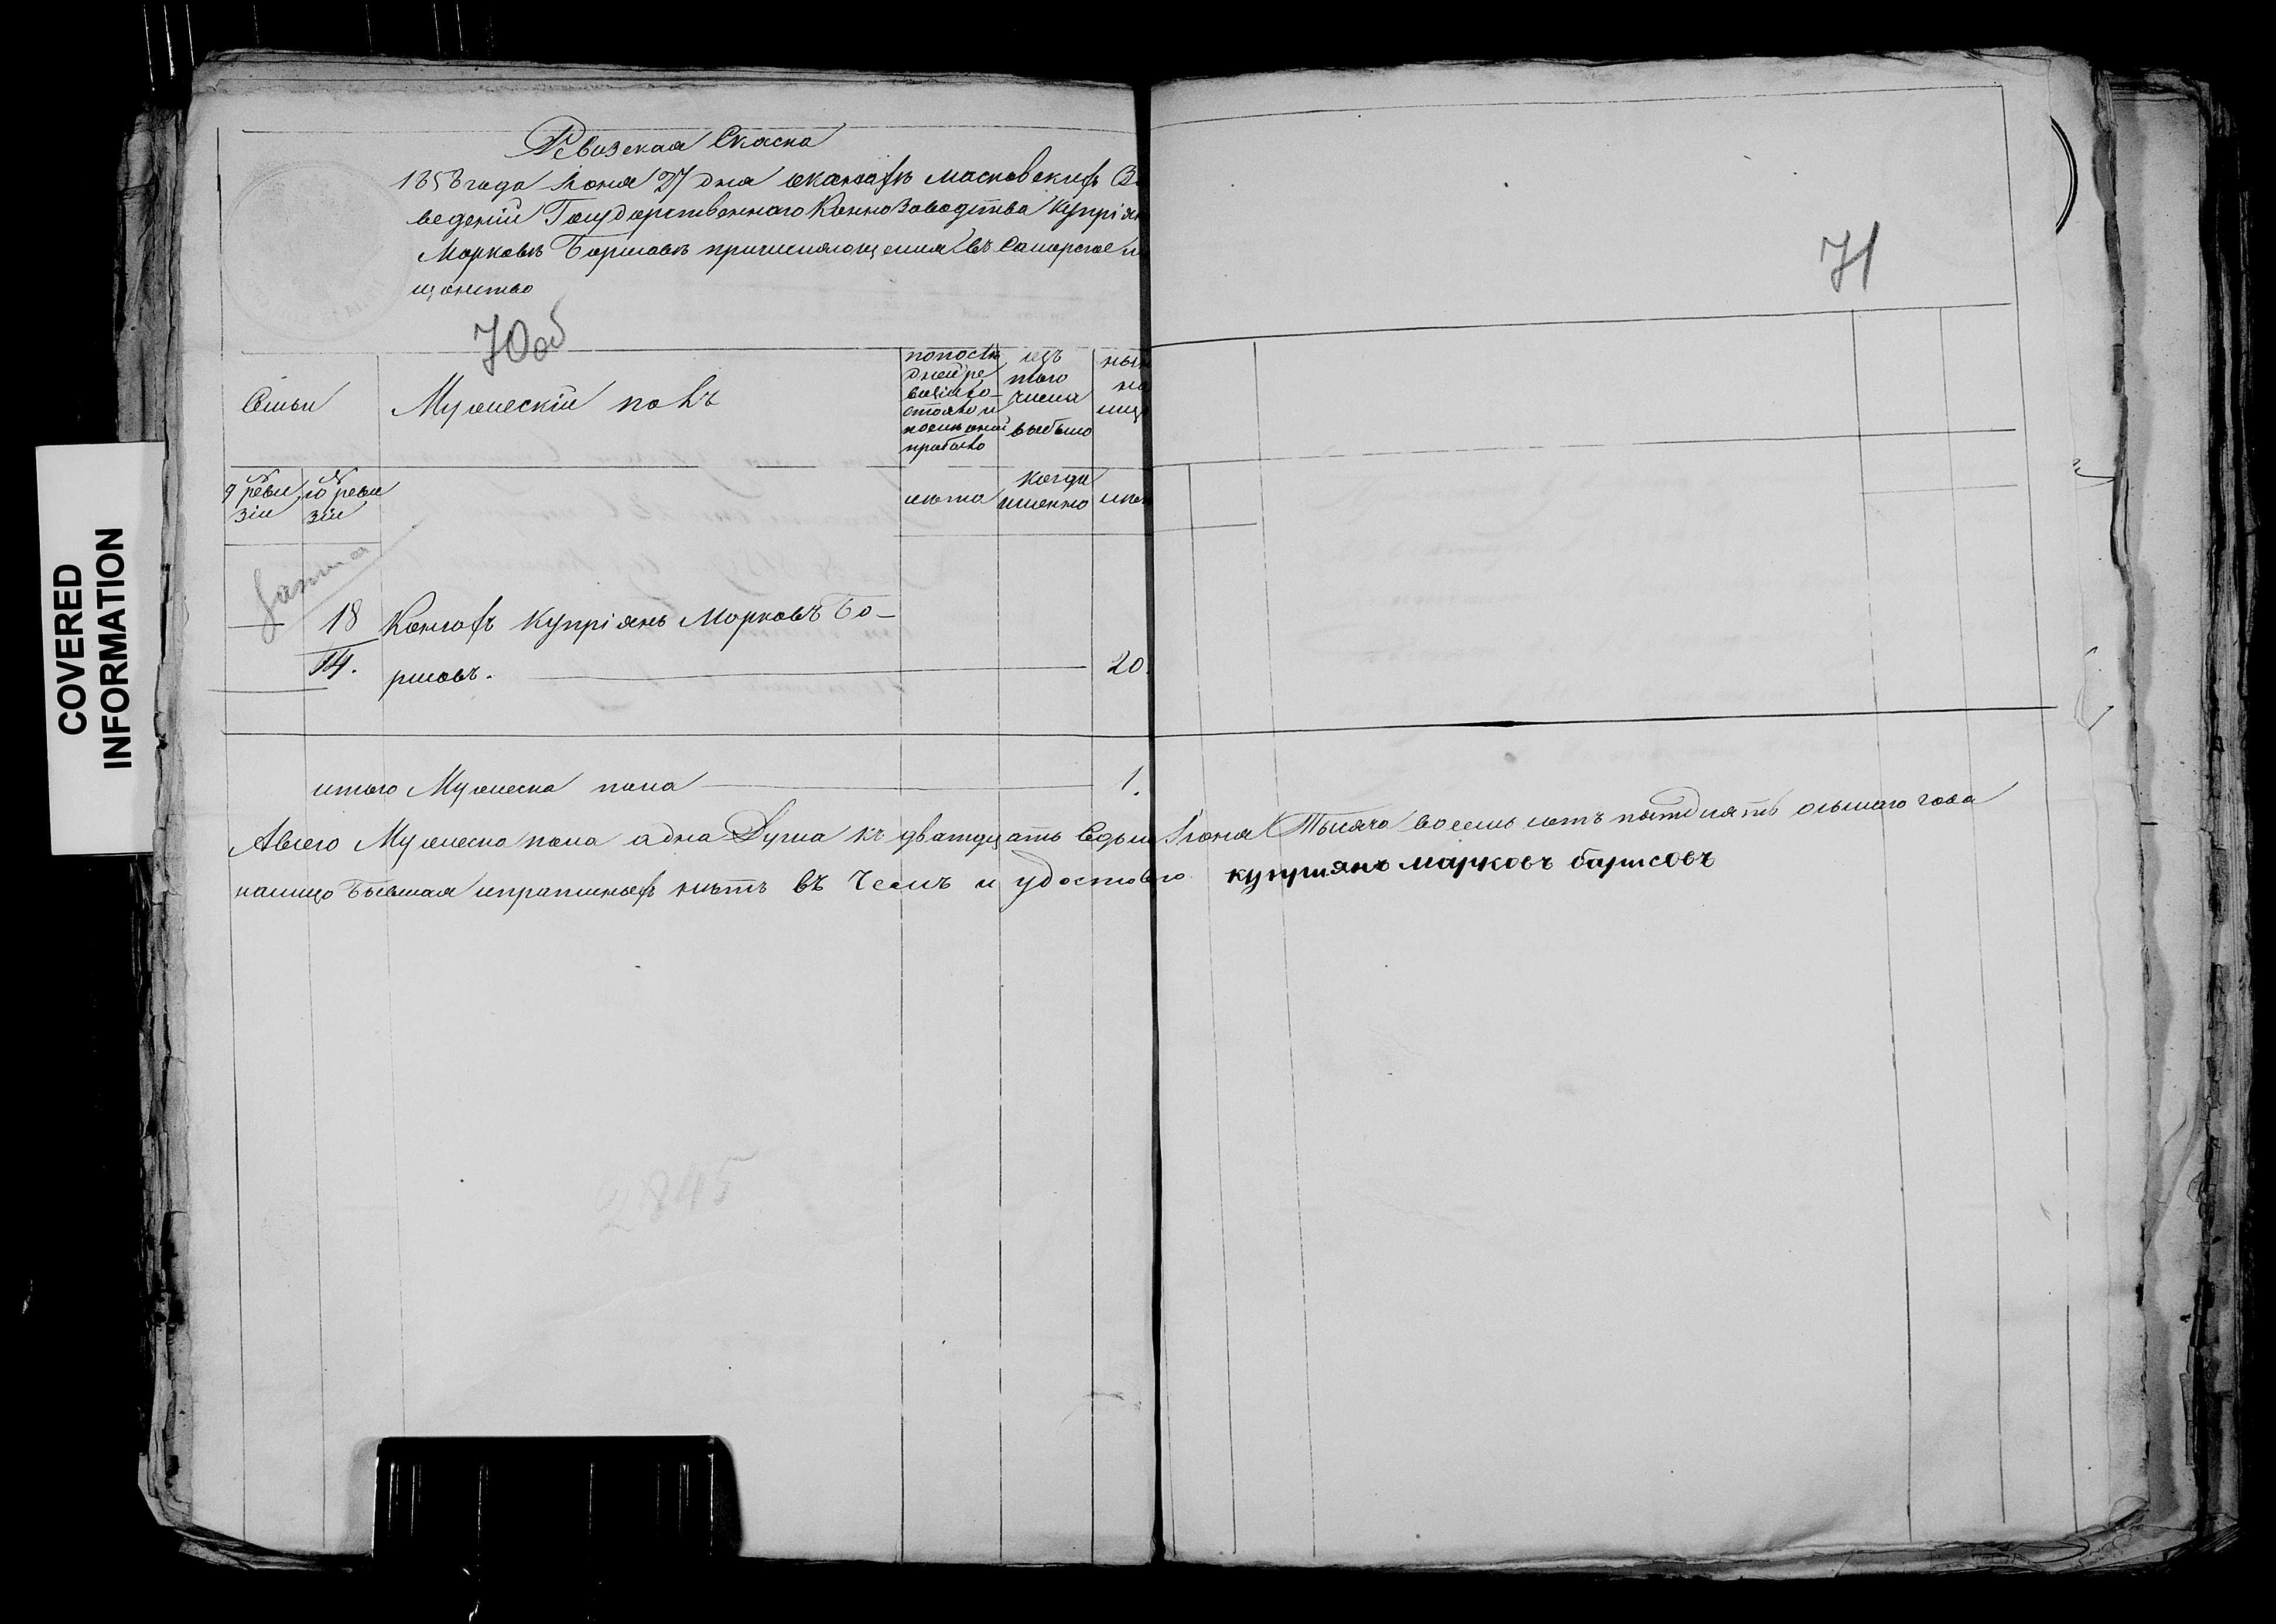 Ревизская Скаска
1858 года Іюня 27 дня оканюхъ Масковскихъ За
ведений Государственнаго Конно Заводства Купріян
Марковъ Борисавъ причисляющемся въ Самарское м
щанство
70 об
71
Семьи
Мужескій полъ
попосле
дней ре
визіи со
стояло и
после оной
прибыло
изъ
того
числа
выбыло
нын
на
лицо
№
9 реви
зіи
№
10 реви
зіи
лета
когда
именно
лет
18
Конюхъ Купріянъ Марковъ Бо-
14.
рисовъ.
20.
итого Мужеска пола
1.
Авсего Мужеска пола адна Душа къ дватцать Седьм Іюня Тысяча восемь сотъ пятдисятъ осьмаго года
налицо Бывшая ипрапиныхъ нетъ въ Чемъ и удостовею куприянъ марковъ барисовъ
2845
COVERED
INFORMATION